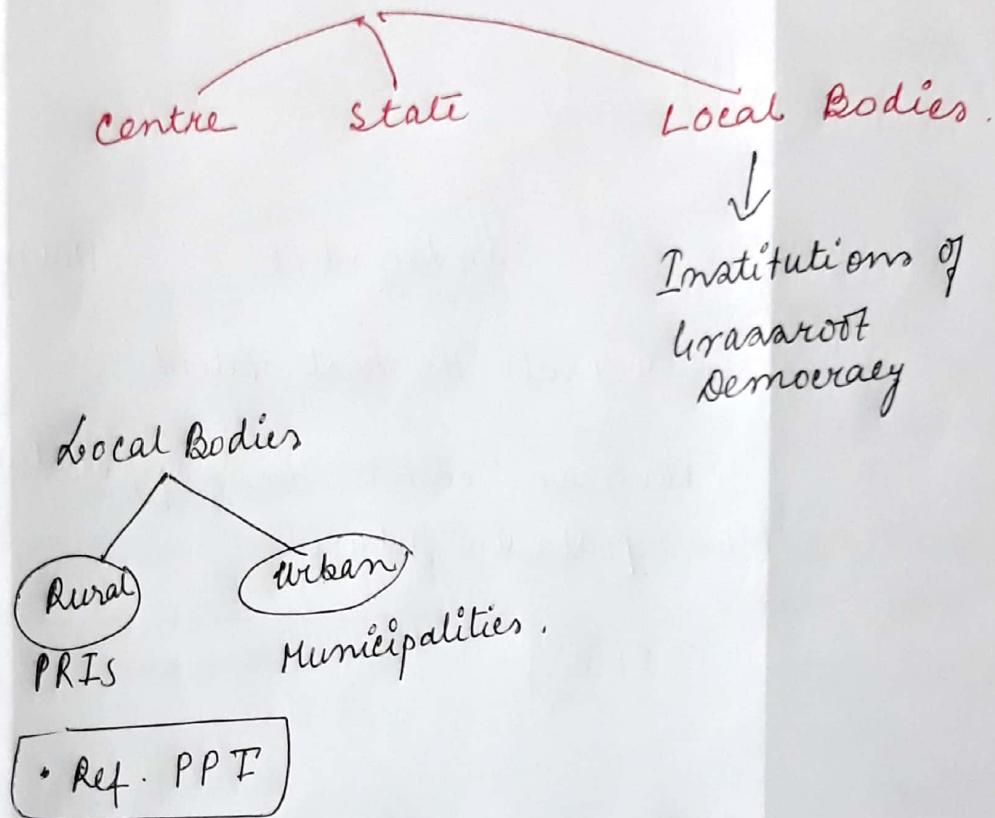 Centre State Local Bodies.
Institutions of
Grassroot
Democracy
Local Bodies
Rural Urban
PRIs Municipalities.
• Ref. PPT